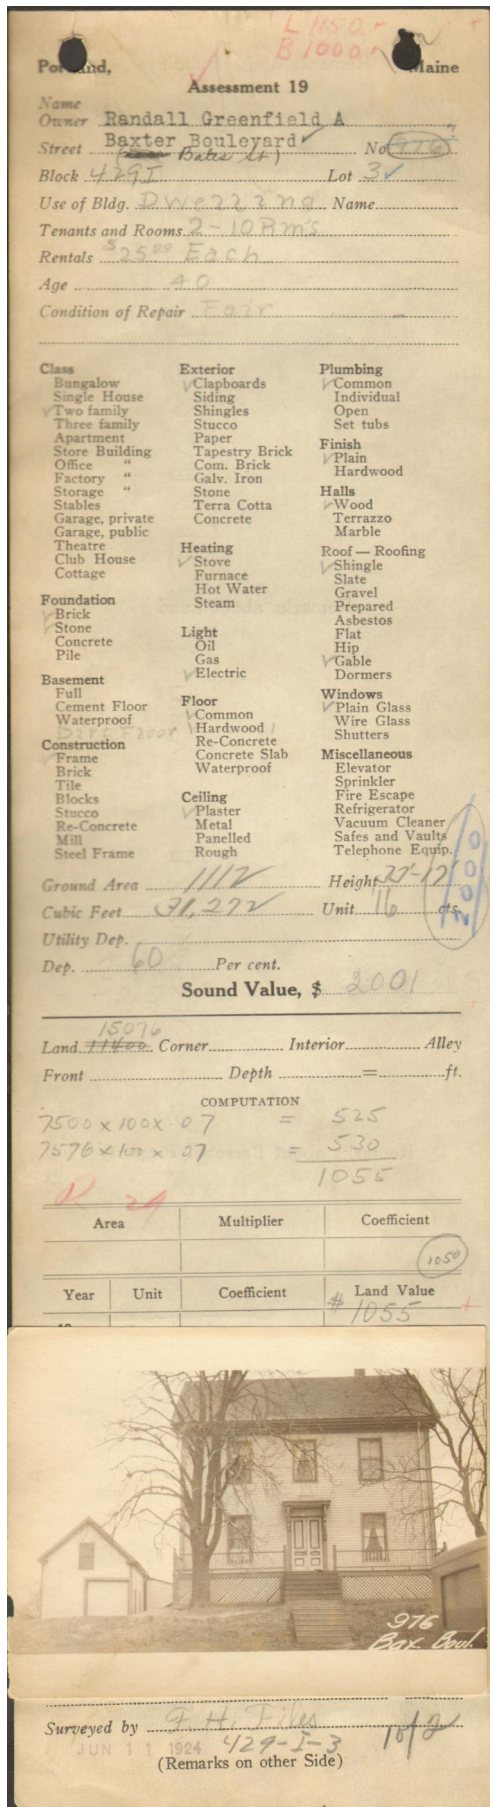 L 1150
B 1000
Portland, Maine
Assessment 19
Name
Owner Randall Greenfield A
Street Baxter Boulevard No 976 ?
( Bates St )
Block 429I Lot 3
Use of Bldg. Dwelling Name
Tenants and Rooms 2-10 Rm's
Rentals $25.00 Each
Age 40
Condition of Repair Fair
Class
Bungalow
Single House
Two family
Three family
Apartment
Store Building
Office "
Factory "
Storage "
Stables
Garage, private
Garage, public
Theatre
Club House
Cottage
Foundation
Brick
Stone
Concrete
Pile
Basement
Full
Cement Floor
Waterproof
Dirt Floor
Construction
Frame
Brick
Tile
Blocks
Stucco
Re-Concrete
Mill
Steel Frame
Exterior
Clapboards
Siding
Shingles
Stucco
Paper
Tapestry Brick
Com. Brick
Galv. Iron
Stone
Terra Cotta
Concrete
Heating
Stove
Furnace
Hot Water
Steam
Light
Oil
Gas
Electric
Floor
Common
Hardwood 1
Re-Concrete
Concrete Slab
Waterproof
Ceiling
Plaster
Metal
Panelled
Rough
Plumbing
Common
Individual
Open
Set tubs
Finish
Plain
Hardwood
Halls
Wood
Terrazzo
Marble
Roof — Roofing
Shingle
Slate
Gravel
Prepared
Asbestos
Flat
Hip
Gable
Dormers
Windows
Plain Glass
Wire Glass
Shutters
Miscellaneous
Elevator
Sprinkler
Fire Escape
Refrigerator
Vacuum Cleaner
Safes and Vaults
Telephone Equip.
Ground Area 1112 Height
Cubic Feet 31,272 Unit 16 cts.
Utility Dep.
Dep. 60 Per cent.
Sound Value, $ 2001
15076
Land 11400 Corner Interior Alley
Front Depth = ft.
COMPUTATION
7500 x 100 x 07 = 525
7576 x 100 x 07 = 530
1055
R 24
Area Multiplier Coefficient
1050
Year Unit Coefficient Land Value
$ 1055
976
Bax. Boul.
Surveyed by F. H. Files
JUN 11 1924 429-I-3 10/2
(Remarks on other Side)